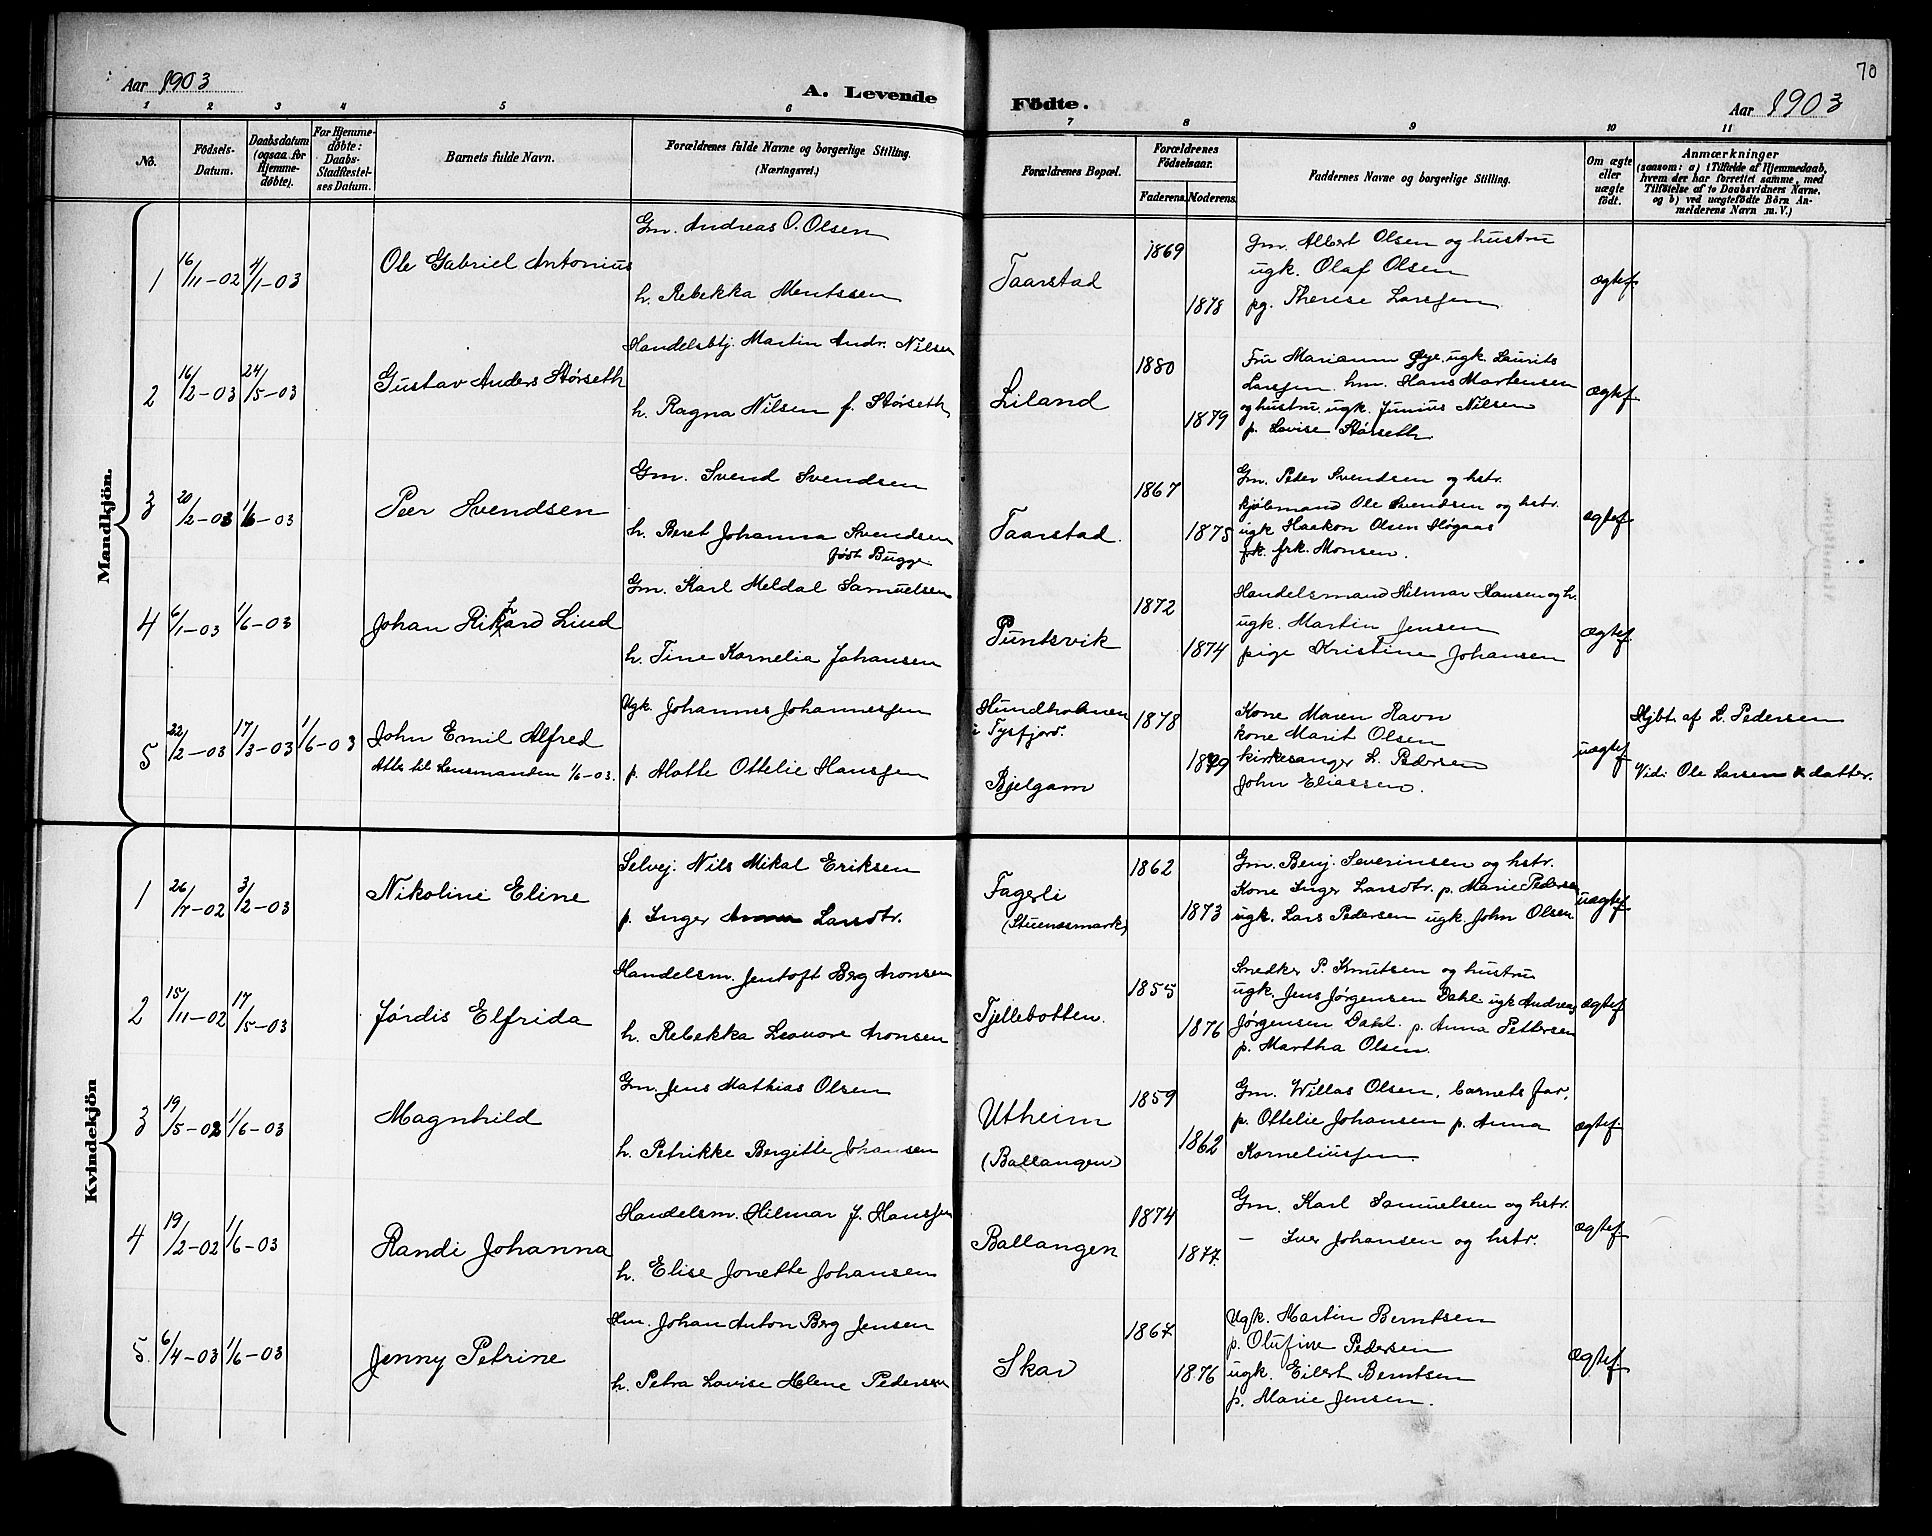 70
Aar 1903
A. Levende
Födte.
Aar 1903
1 2 3 4 5 6 7 8 9 10 11
No.
Födsels-Datum.
Daabsdatum (ogsaa for Hjemmedöbte).
For Hjemmedöbte: Daabs-Stadfæstelses Datum.
Barnets fulde Navn.
Forældrenes fulde Navne og borgerlige Stilling. (Næringsvei.)
Forældrenes Bopæl.
Forældrenes Födselsaar.
Faderens.
Moderens.
Faddernes Navne og borgerlige Stilling.
Om ægte eller uægte födt.
Anmærkninger
(saasom: a) i Tilfælde af Hjemmedaab, hvem der har forrettet samme, med Tilföielse af to Daabsvidners Navne, og b) ved uægtefödte Börn Anmelderens Navn m. V.)
Mandkjön.
1
16/11-02
4/1-03
Ole Gabriel Antonius
Gm. Andreas O. Olsen
h. Rebekka Mentssen
Taarstad
1869
1878
Gm. Albert Olsen og hustru
ugk. Olaf Olsen
pg. Therese Larssen
ægtef.
2
16/2-03
24/5-03
Gustav Anders Størseth
Handelsbtj. Martin Andr. Nilsen
h. Ragna Nilsen f. Størseth
Liland
1880
1879
Fru Mariann Øye, ugk. Laurits
Larssen. hm. Hans Martensen
og hustru. ugk. Junius Nilsen
p. Lovise Størseth
ægtef.
3
20/2-03
1/6-03
Peer Svendsen
Gm. Svend Svendsen
h. Beret Johanna Svendsen
født Bugge.
Taarstad.
1867
1875
Gm. Peder Svendsen og hstr.
kjøbmand Ole Svendsen og hstr.
ugk Haakon Olsen Høgaas
frk. frk. Monsen.
ægtef.
4
6/1-03
1/6-03
Johan Rikhard Lind
Gm. Karl Meldal Samuelsen
h. Tine Kornelia Johansen
Puntsvik
1872
1874
Handelsmand Hilmar Hansen og h.
ugk. Martin Jensen
pige Kristine Johansen
ægtef.
5
22/2-03
17/3-03
1/6-03
John Emil Alfred
Attes til Lensmanden 1/6-03.
Ugk. Johannes Johannessen
p. Motte Ottelie Hanssen
Hundholmen
i Tysfjord.
Bjelgam
1878
1879
Kone Maren Ravn
kone Marit Olsen
kirkesanger L. Pedersen
John Eliassen.
uægtef.
Hjbt. af L. Pedersen
Vid: Ole Larsen & datter.
Kvindekjön
1
3/2-03
Nikoline Eline
Selvej. Nils Mikal Eriksen
p. Inger Larsdtr.
Fagerli
(Stuenesmark)
1862
1873
Gm. Benj. Severinsen og hstr.
Kone Inger Larsdtr. p. Marie Pedersen
ugk. Lars Pedersen ugk. John Olsen
uægtef.
2
15/11-02
17/5-03
Jørdis Elfrida
Handelsm. Jentoft Berg Aronsen
h. Rebekka Leonore Aronsen
Tjellebotten.
1855
1876
Snedker P. Knutsen og hustru
ugk. Jens Jørgensen Dahl. ugk Andreas
Jørgensen Dahl. p. Anna Pettersen
p. Martha Olsen.
ægtef
3
19/5-02
1/6-03
Magnhild
Gm. Jens Mathias Olsen
h. Petrikke Bergitte Johansen
Utheim
(Ballangen)
1859
1862
Gm. Willas Olsen, barnets far,
p. Ottelie Johansen p. Anna
Korneliussen.
ægtef.
4
19/2-02
1/6-03
Randi Johanna
Handelsm. Hilmar J. Hanssen
h. Elise Jonette Johansen
Ballangen
1874
1877.
Gm. Karl Samuelsen og hstr.
— Iver Johansen og hstr.
ægtef.
5.
6/4-03
1/6-03
Jenny Petrine
Hm. Johan Anton Berg Jensen
h. Petra Lovise Helene Pedersen
Skar
1867
1876
Ugk. Martin Berntsen
p. Olufine Pedersen
ugk. Eilert Berntsen
p. Marie Jensen.
ægtef.